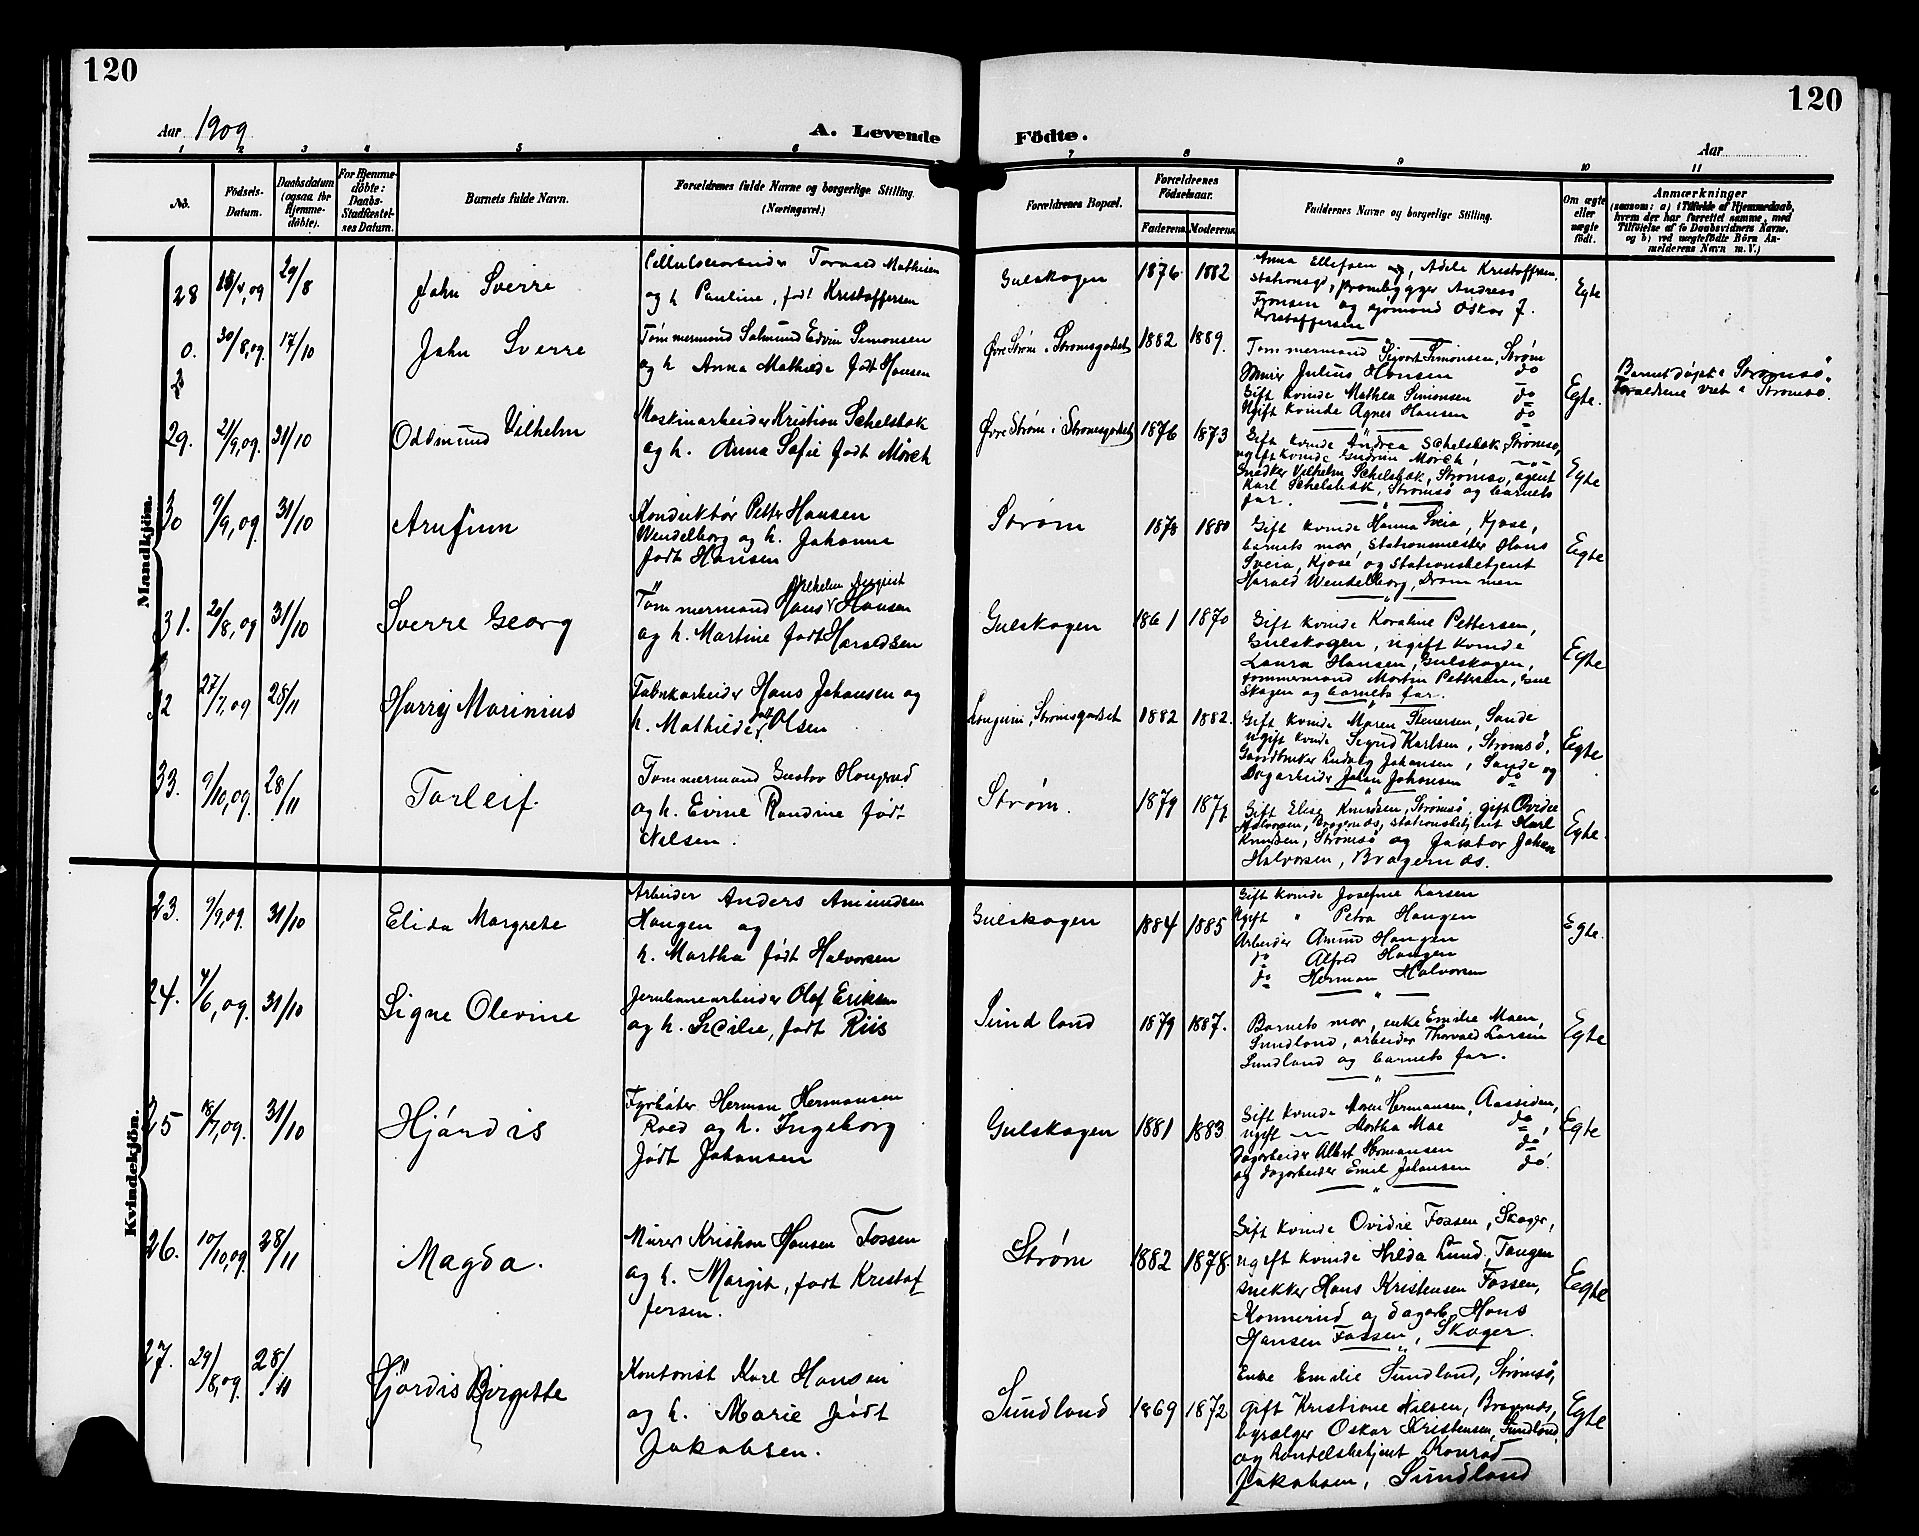 120
120
Aar 1909
A. Levende
Födte.
Aar
1 2 3 4 5 6 7 8 9 10 11
No.
Födsels-Datum.
Daabsdatum (ogsaa for Hjemmedöbte).
For Hjemmedöbte: Daabs-Stadfæstelses Datum.
Barnets fulde Navn.
Forældrenes fulde Navne og borgerlige Stilling. (Næringsvei.)
Forældrenes Bopæl.
Forældrenes Födselsaar.
Faderens. Moderens.
Faddernes Navne og borgerlige Stilling.
Om ægte eller uægte födt.
Anmærkninger
(saasom: a) i Tilfælde af Hjemmedaab, hvem der har forrettet samme, med Tilföielse af to Daabsvidners Navne, og b) ved uægtefödte Börn Anmelderens Navn m. V.)
Mandkjön.
28 29/8 John Sverre
Cellulosearbeider Torvald Mathisen
og h Pauline, født Kristoffersen
Gulskogen 1876 1882
Anna Ellefsen og, Adele Kristoffersen
Andreas
og sjømand Oskar J.
Kristoffersen
Egte
0. 30/8,09. 17/10 John Sverre
Tømmermand Salmund Edvin Simonsen
og h Anna Mathilde født Hansen
Øvre Strøm i Strømsgodset 1882 1889.
Tømmermand Sigvart Simonsen, Strøm
Murer Julius Hansen do
Gift kvinde Mathea Simonsen do
Ugift kvinde Agnes Hansen do
Egte.
Barnet døpt i Strømsö.
Forældrene viet i Strømsö.
29. 21/9,09. 31/10 Oddmund Vilhelm
Maskinarbeider Kristian Schelsbak
og h. Anna Sofie født Mörch
Øvre Strøm i Strømsgodset 1876 1873
Gift kvinde Andrea Schelsbak, Strømsø,
ugift kvinde Gudrun Mörch,
Snedker Vilhelm Schelsbak, Strømsø, agent
Karl Schelsbak, Strømsö og barnets
far.
Egte
30 9/9,09. 31/10 Arnfinn
Konduktør Petter Hansen
Wendelborg og h. Johanne
født Hansen
Strøm 1878 1880
Gift kvinde Hanna Sveia, Kjose,
barnets mor, Stationsmester Hans
Sveia, Kjose og Stationsbetjent
Harald Wendelborg, Drammen
Egte
31. 20/8,09 31/10 Sverre Georg
Vilhelm August
Tømmermand Hans Hansen
og h. Martine født Haraldsen
Gulskogen 1861 1870
Gift kvinde Karoline Pettersen,
Gulskogen, ugift kvinde
Laura Hansen, Gulskogen,
tømmermand Martin Pettersen, Gul
skogen og barnets far.
Egte
32 27/7,09 28/11 Harry Marinius
Fabrikarbeider Hans Johansen og
h. Mathilde født Olsen
Strømsgodset 1882 1882.
Gift kvinde Maren Stenersen, Sande
ugift kvinde Sigrid Karlsen, Strømsö,
Gaardbruker Ludvig Johansen, Sande og
Dagarbeider Johan Johansen do
Egte
33. 9/10,09 28/11 Torleif.
Tømmermand Gustav Haugrud
og h. Evine Randine født
Nilsen.
Strøm. 1879 1879
Gift Elise Knudsen, Strømsö, gift Ovidie
Halvorsen, Bragernæs, stationsbetjent Karl
Knudsen, Strømsö og Johan
Halvorsen, Bragernæs.
Egte.
Kvindekjön.
23. 9/9,09. 31/10 Elida Margrete
Arbeider Anders Amundsen
Haugen og
h. Martha født Halvorsen
Gulskogen 1884 1885
Gift kvinde Josefine Larsen
Ugift " Petra Haugen
Arbeider Amund Haugen
do Alfred Haugen
do Herman Halvorsen
Egte.
24. 4/6,09. 31/10 Signe Olevine
Jernbanearbeider Olaf Eriksen
og h. Secilie, født Riis
Sundland 1879 1887.
Barnets mor, enke Emilie Moen,
Sundland, arbeider Thorvald Larsen
Sundland og barnets far.
Egte
25 18/7,09. 31/10 Hjördis
Fyrbøter Herman Hermansen
Roed og h. Ingeborg
født Johansen
Gulskogen 1881 1883
Gift kvinde Maren Hermansen, Aassiden,
ugift Martha Moe do,
Dagarbeider Albert Hermansen do
og dagarbeider Emil Johansen do.
Egte
26. 10/10,09. 28/11 Magda.
Murer Kristian Hansen Fossen
og h. Margit, født Kristof
fersen.
Strøm 1882 1878.
Gift kvinde Ovidie Fossen, Skoger,
ugift kvinde Hilda Lund, Tangen
snekker Hans Kristensen Fossen,
Konnerud og dagarb. Hans
Hansen Fossen, Skoger.
Egte
27. 29/8,09. 28/11 Hjördis Birgitte
Kontorist Karl Hansen
og h. Marie født
Jakobsen.
Sundland 1869 1872
Enke Emilie Sundland, Strømsø,
gift Kristiane Nilsen, Bragernæs,
Oskar Kristensen, Sundland,
og handelsbetjent Konrad
Jakobsen, Sundland
Egte